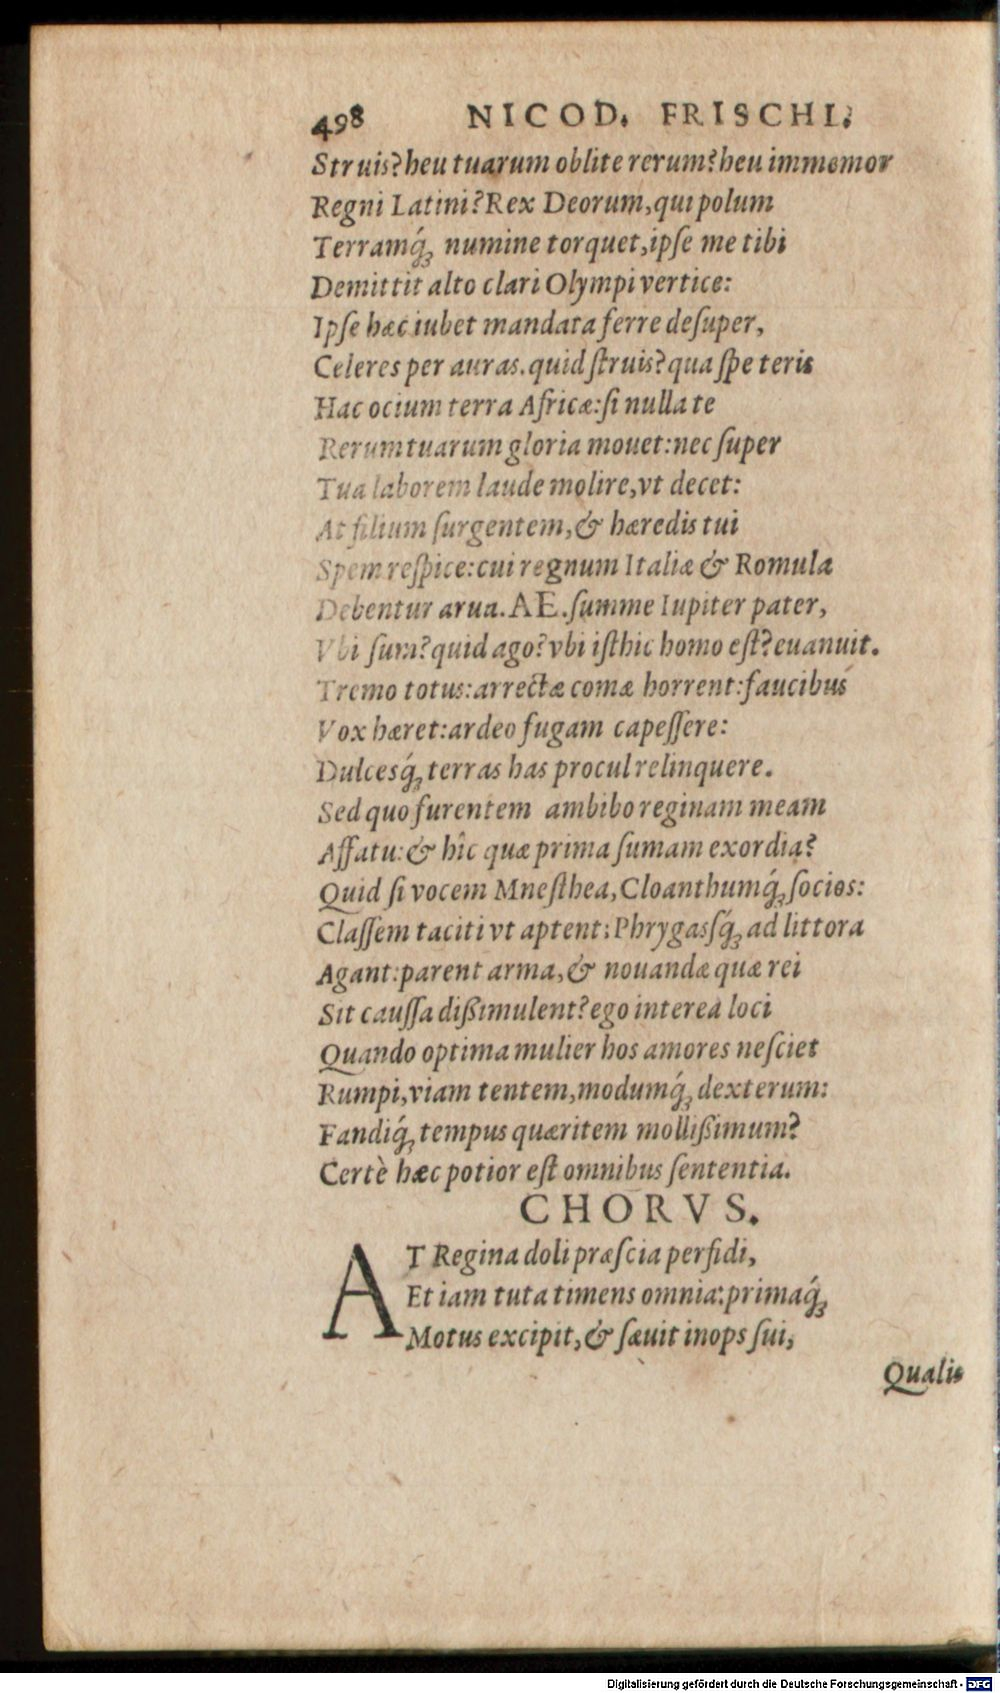 498 NICOD. FRISCHI.
Struis? heu tuarum oblite rerum? heu immemor
Regni Latini? Rex Deorum, qui polum
Terramq́ꝫ numine torquet, ipſe me tibi
Demittit alto clari Olympi vertice:
Ipſe hæc iubet mandata ferre deſuper,
Celeres per auras. quid ſtruis? qua ſpe teris
Hac ocium terra Africæ: ſi nulla te
Rerum tuarum gloria mouet: nec ſuper
Tua laborem laude molire, vt decet:
At filium ſurgentem, & hæredis tui
Spem reſpice: cui regnum Italiæ & Romula
Debentur arua. AE. ſumme Iupiter pater,
Vbi ſum? quid ago? vbi iſthic homo eſt? euanuit.
Tremo totus: arrectæ comæ horrent: faucibus
Vox hæret: ardeo fugam capeſſere:
Dulcesq́ꝫ terras has procul relinquere.
Sed quo furentem ambibo reginam meam
Affatu: & hîc quæ prima ſumam exordia?
Quid ſi vocem Mneſthea, Cloanthumq́ꝫ ſocios:
Claſſem taciti vt aptent; Phrygasſq́ꝫ ad littora
Agant: parent arma, & nouandæ quæ rei
Sit cauſſa dißimulent? ego interea loci
Quando optima mulier hos amores neſciet
Rumpi, viam tentem, modumq́ꝫ dexterum:
Fandiq́ꝫ tempus quæritem mollißimum?
Certè hæc potior eſt omnibus ſententia.
CHORVS.
AT Regina doli præſcia perfidi,
Et iam tuta timens omnia: primaq́ꝫ
Motus excipit, & ſæuit inops ſui,
Qualis
Digitalisierung gefördert durch die Deutsche Forschungsgemeinschaft - DFG